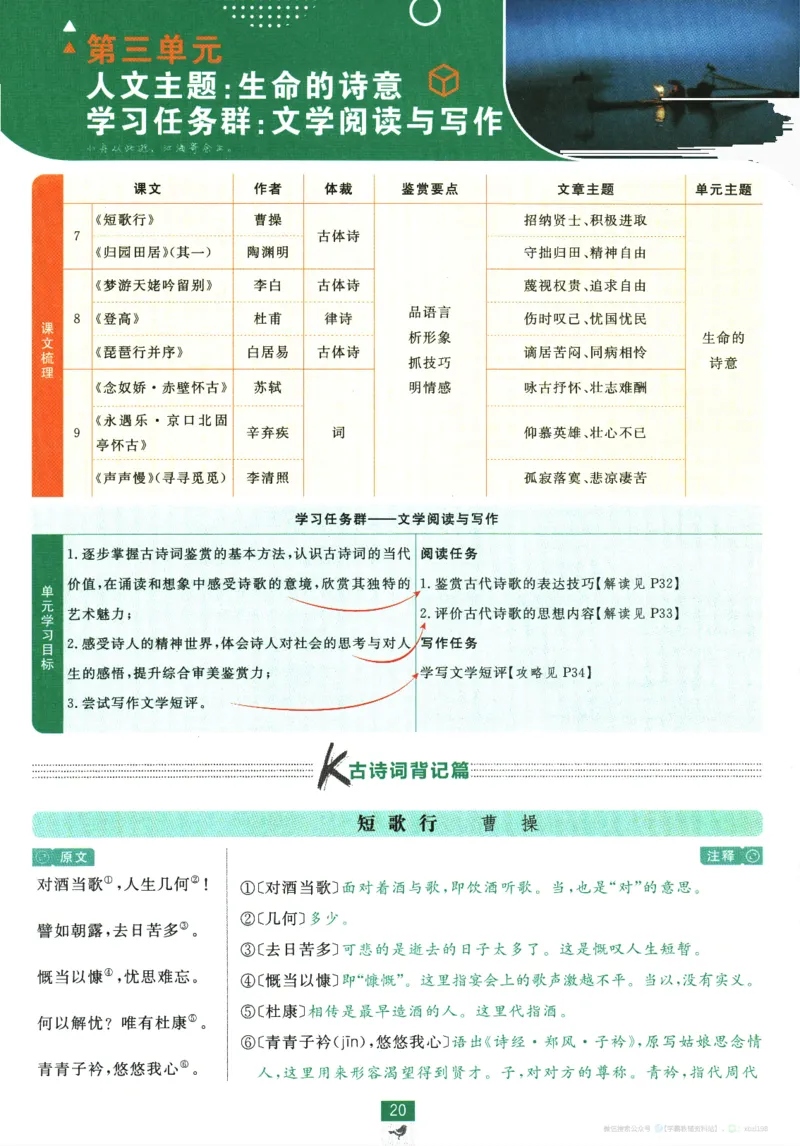 第三单元
人文主题:生命的诗意
学习任务群:文学阅读与写作
课文 作者 体裁 鉴赏要点 文章主题 单元主题
课文梳理
7
《短歌行》 曹操 古体诗 招纳贤士、积极进取
《归园田居》(其一) 陶渊明 守拙归田、精神自由
8
《梦游天姥吟留别》 李白 古体诗 蔑视权贵、追求自由
《登高》 杜甫 律诗 伤时叹己、忧国忧民
《琵琶行并序》 白居易 古体诗 谪居苦闷、同病相怜
品语言
析形象
抓技巧
明情感
生命的
诗意
9
《念奴娇·赤壁怀古》 苏轼 词 咏古抒怀、壮志难酬
《永遇乐·京口北固
亭怀古》 辛弃疾 仰慕英雄、壮心不已
《声声慢》(寻寻觅觅) 李清照 孤寂落寞、悲凉凄苦
学习任务群——文学阅读与写作
单元学习目标
1.逐步掌握古诗词鉴赏的基本方法,认识古诗词的当代
价值,在诵读和想象中感受诗歌的意境,欣赏其独特的
艺术魅力;
2.感受诗人的精神世界,体会诗人对社会的思考与对人
生的感悟,提升综合审美鉴赏力;
3.尝试写作文学短评。
阅读任务
1.鉴赏古代诗歌的表达技巧【解读见 P32】
2.评价古代诗歌的思想内容【解读见 P33】
写作任务
学写文学短评【攻略见 P34】
K古诗词背记篇
短歌行 曹操
原文
对酒当歌①,人生几何②!
譬如朝露,去日苦多③。
慨当以慷④,忧思难忘。
何以解忧?唯有杜康⑤。
青青子衿,悠悠我心⑥。
注释
①〔对酒当歌〕面对着酒与歌,即饮酒听歌。当,也是“对”的意思。
②〔几何〕多少。
③〔去日苦多〕可悲的是逝去的日子太多了。这是慨叹人生短暂。
④〔慨当以慷〕即“慷慨”。这里指宴会上的歌声激越不平。当以,没有实义。
⑤〔杜康〕相传是最早造酒的人。这里代指酒。
⑥〔青青子衿(jīn),悠悠我心〕语出《诗经·郑风·子衿》,原写姑娘思念情
人,这里用来形容渴望得到贤才。子,对对方的尊称。青衿,指代周代
20